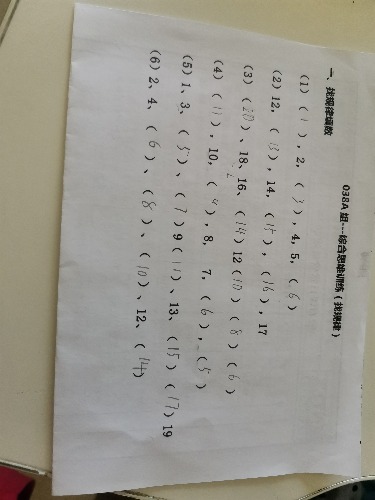 038A 组---综合思维训练（找规律）
一、找规律填数
（1）（1），2，（3），4，5，（6）
（2）12，（13），14，（15），（16），17
（3）（20）、18、16、（14）12（10）（8）（6）
（4）（11），10，（9），8，7，（6），（5）
（5）1、3、（5）、（7）9（11）、13、（15）（17）19
（6）2、4、（6）、（8）、（10）、12、（14）